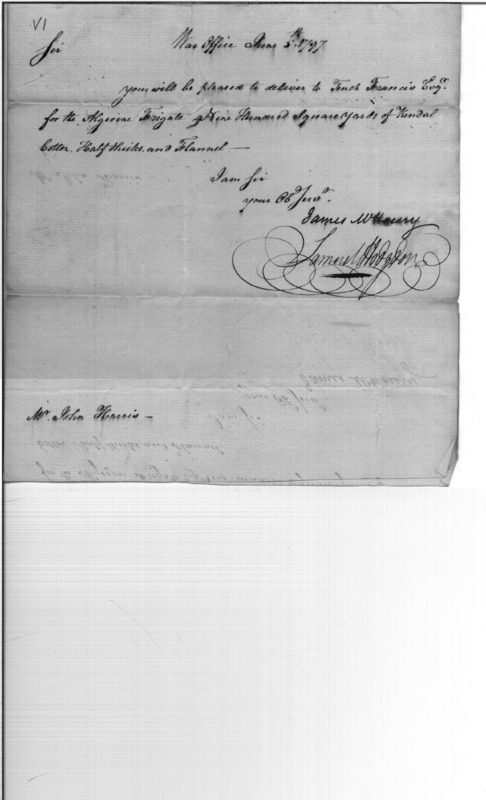 VI
Sir War Office June 5th. 1797
you will be pleased to deliver to Tench Francis Esqr.
for the Algerine Frigate Nine Hundred Square yards of Kendal
Cotton, Half thicks, and Flannel—
I am Sir
your Ob Servt.
James McHenry
Samuel Hodgdon
Mr. John Harris—